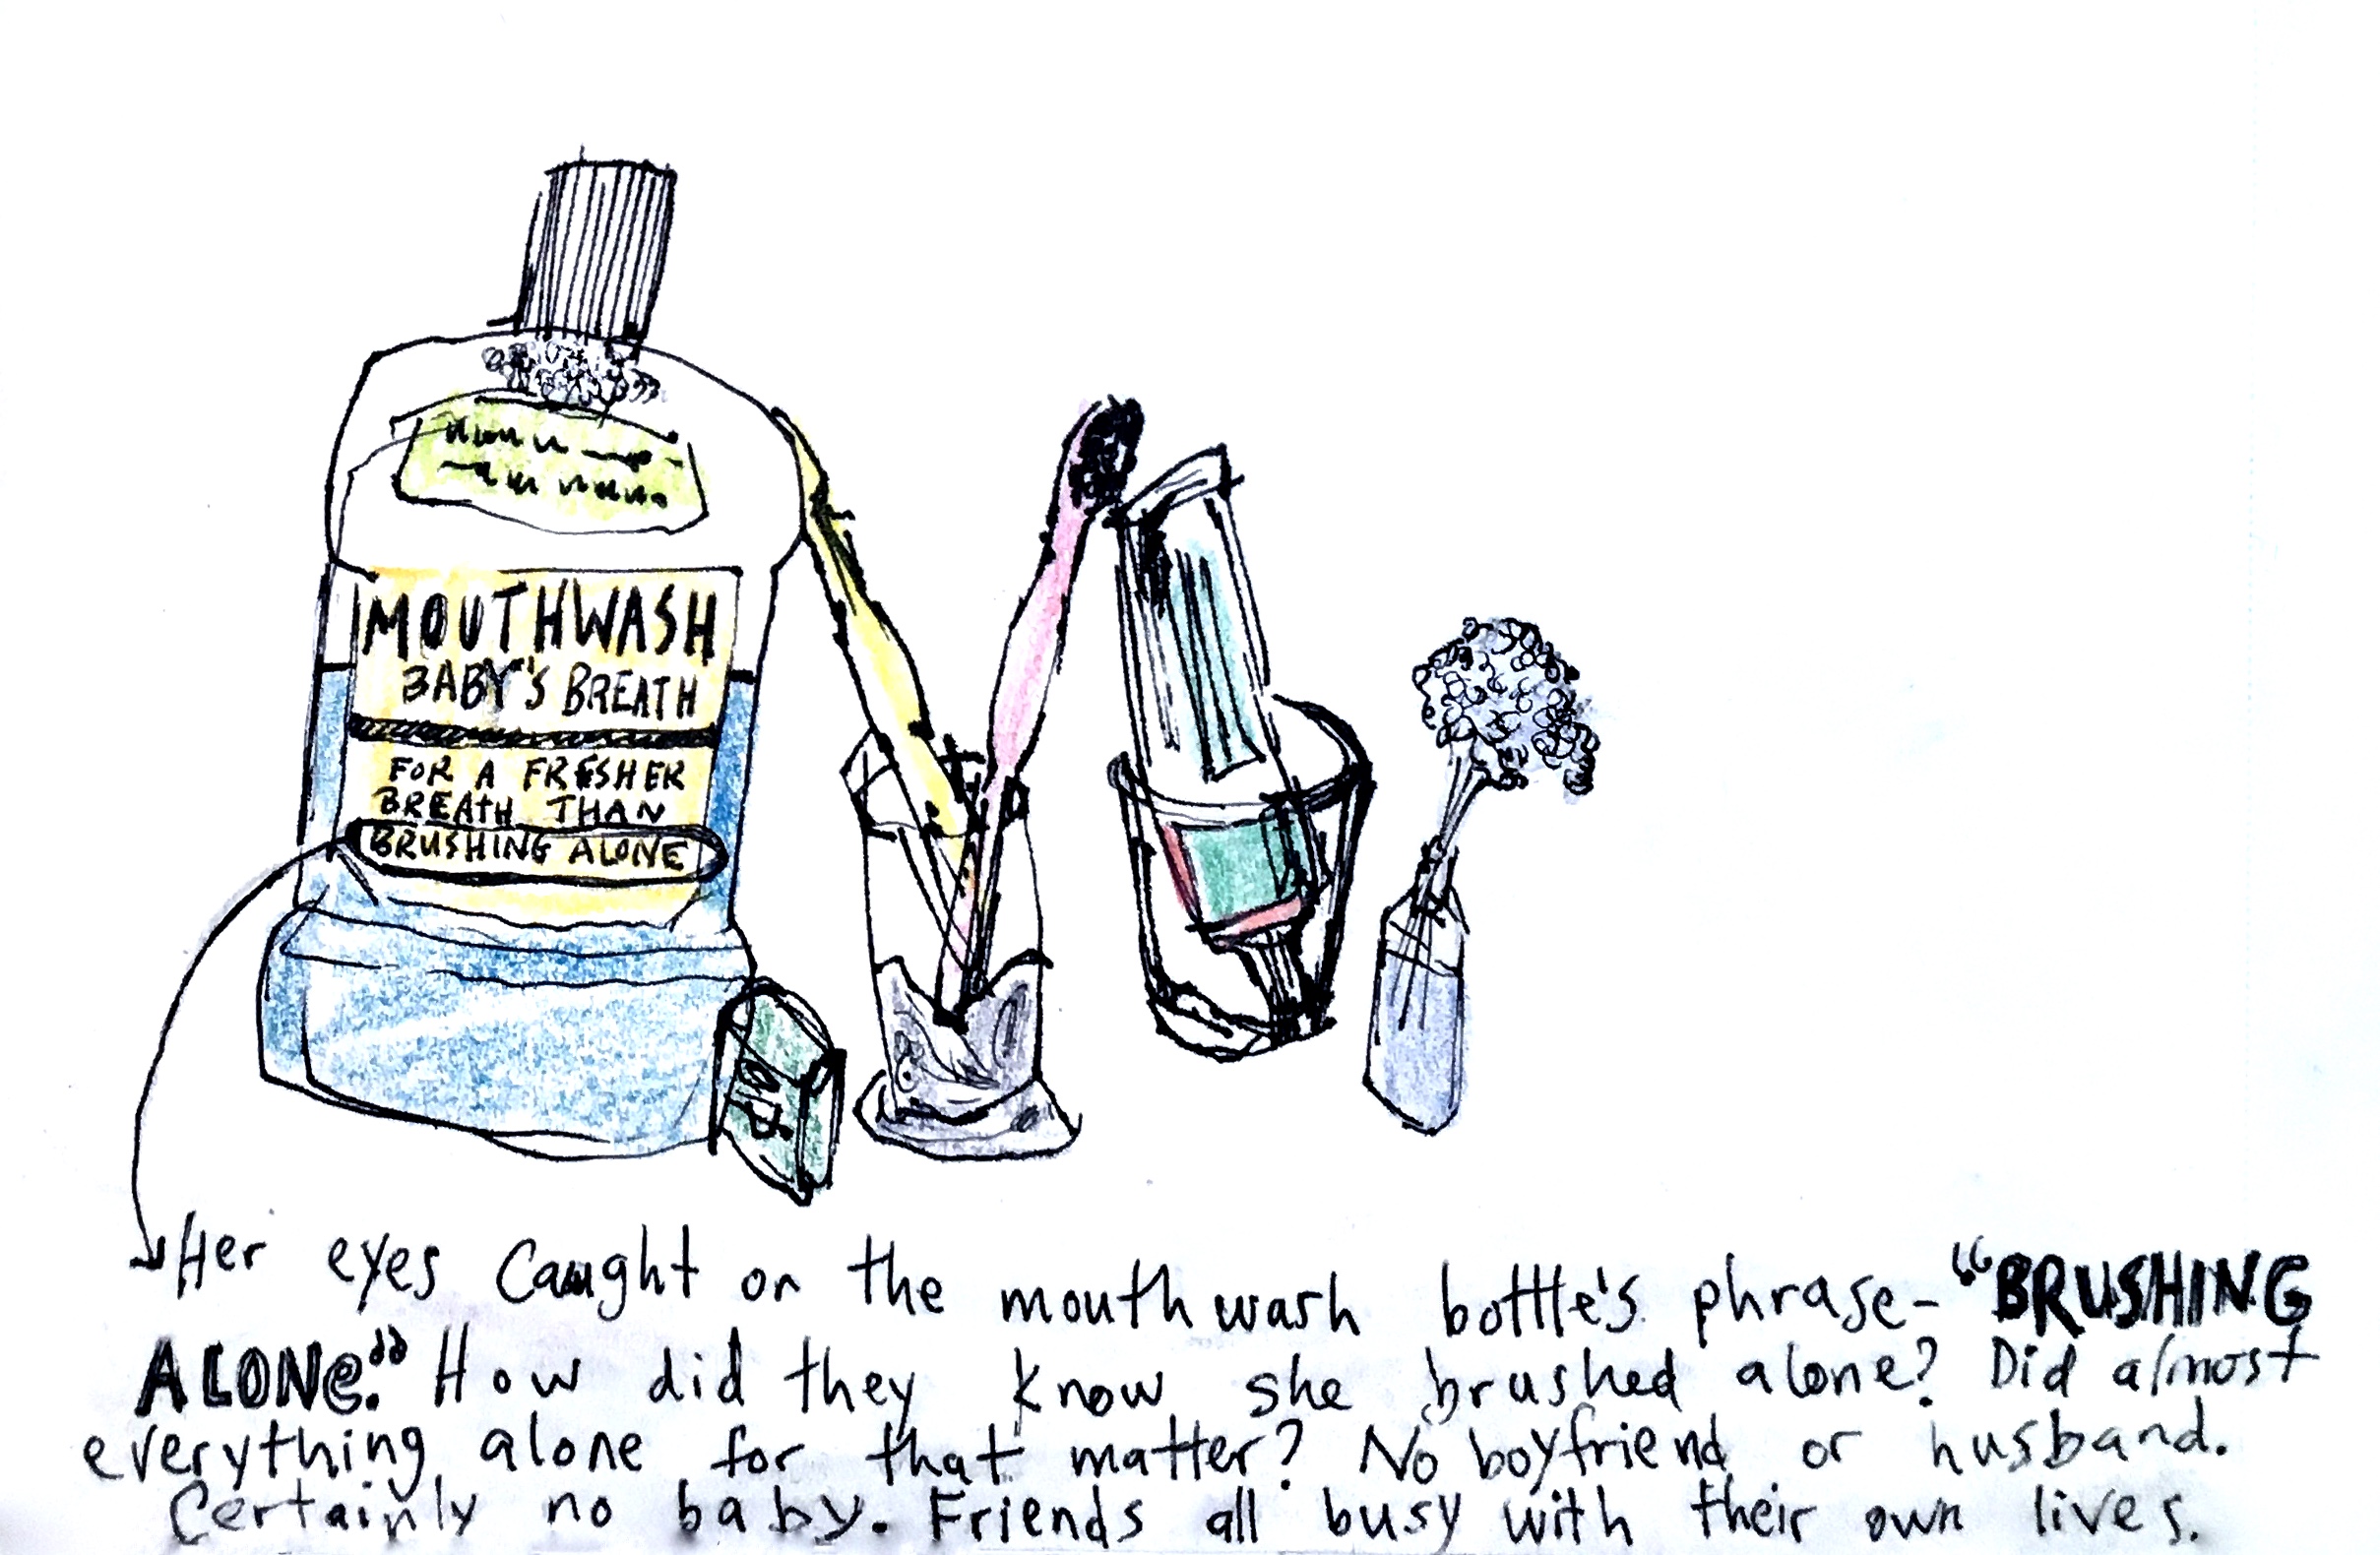 MOUTHWASH
BABY'S BREATH
FOR A FRESHER
BREATH THAN
BRUSHING ALONE
Her eyes caught on the mouthwash bottle's phrase- "BRUSHING
ALONe." How did they know she brushed alone? Did almost
everything alone for that matter? No boyfriend or husband.
Certainly no baby. Friends all busy with their own lives.